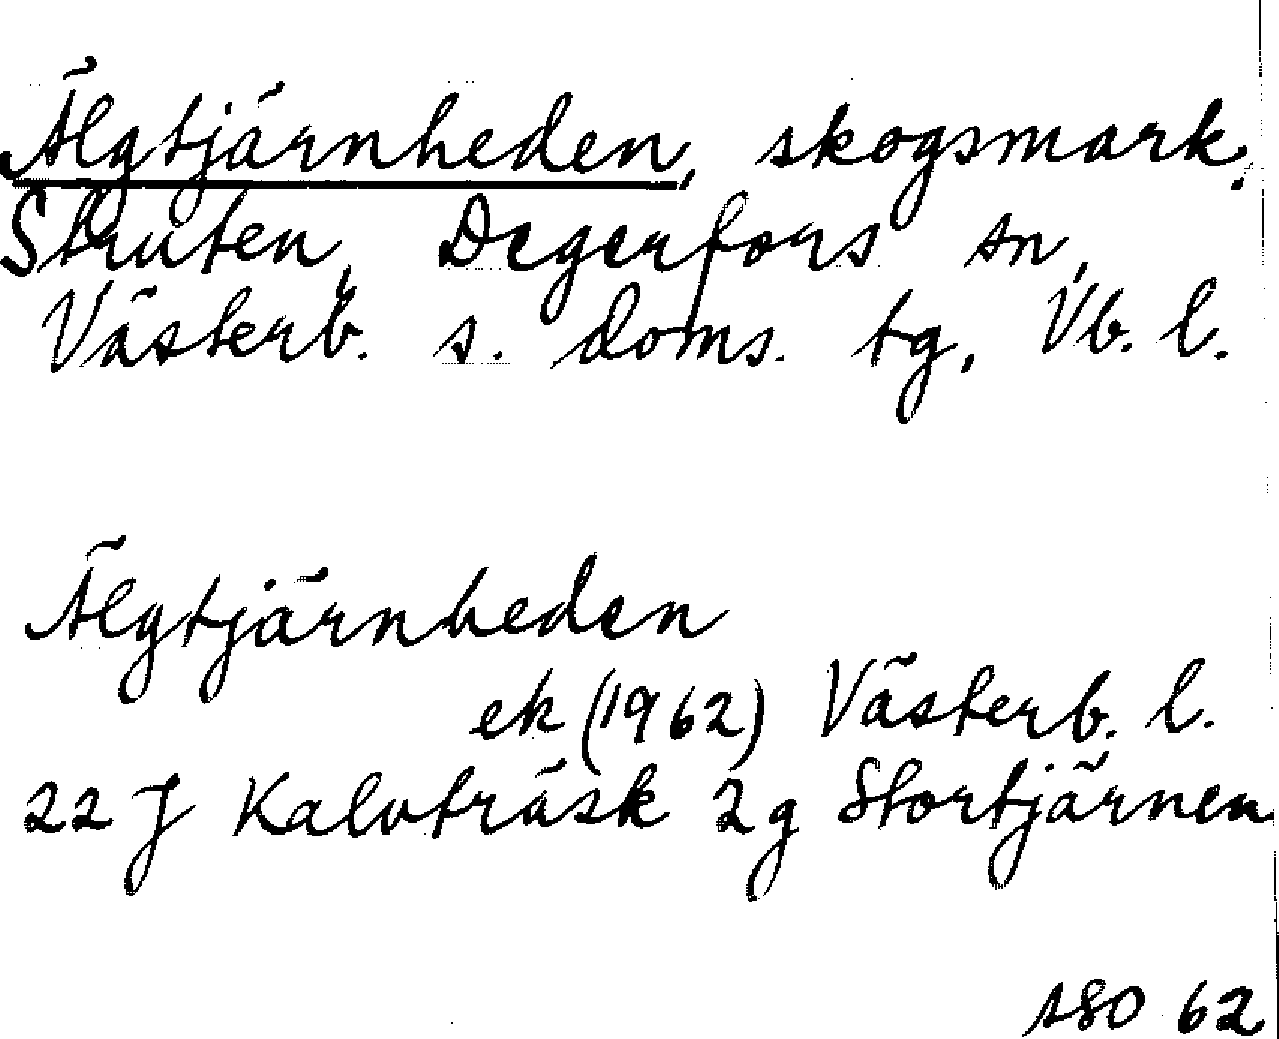 Älgtjärnheden, skogsmark.
Struten, Degerfors sn,
Västerb. s. doms. tg, Vb. l.
Älgtjärnheden
ek (1962) Västerb. l.
22 J Kalvträsk 2g Stortjärnen
ASO 62